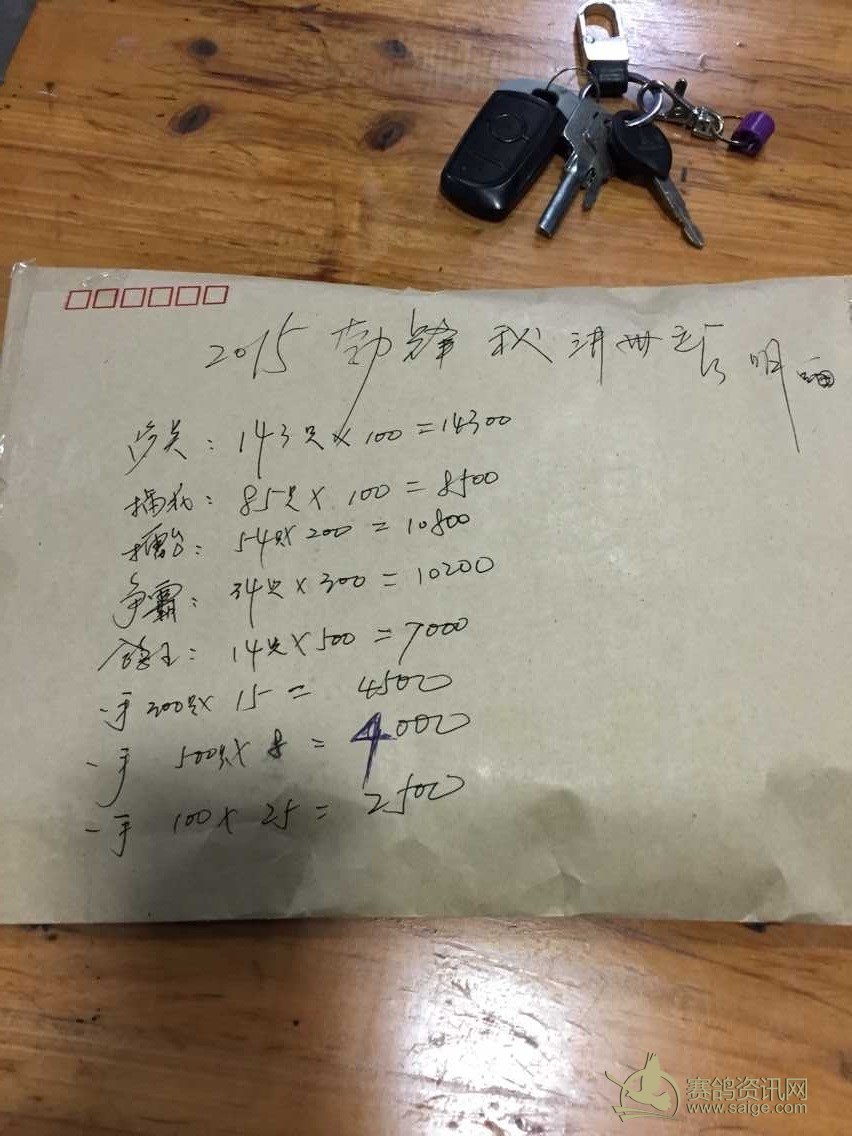 2015 秋 明细
沙关：143只×100=14300
插孤：85只×100=8500
擂台：54只×200=10800
争霸：34只×300=10200
鸽王：14只×500=7000
一羽 300只×15=4500
一羽 500只×8=4000
一羽 100×25=2500
赛鸽资讯网
www.saige.com